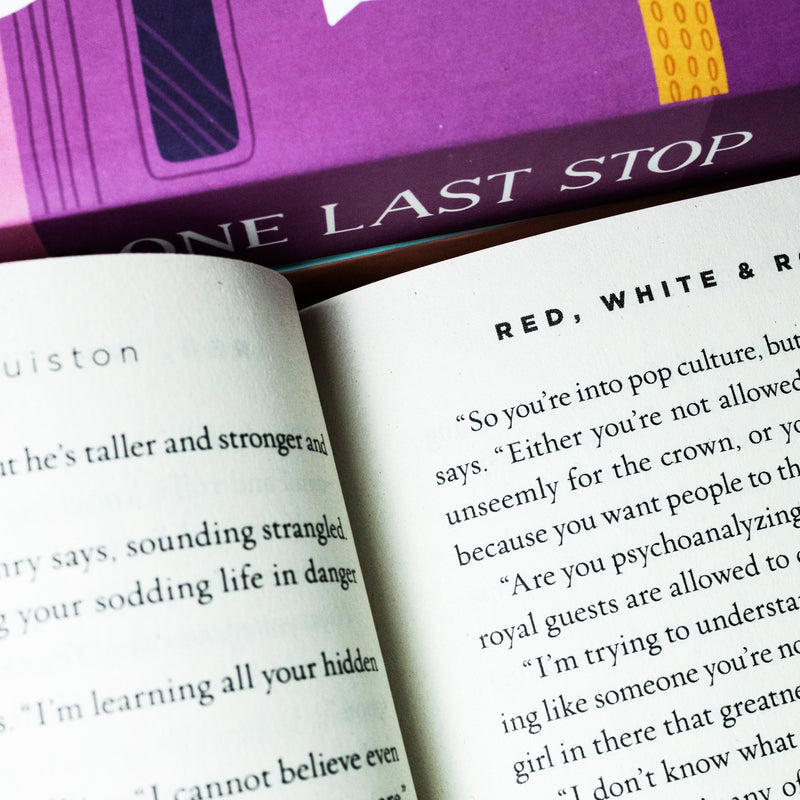 ONE LAST STOP
uiston
he's taller and stronger and
says, sounding strangled.
your sodding life in danger
"I'm learning all your hidden
"I cannot believe even
RED, WHITE & R
"So you're into pop culture, but
says. "Either you're not allowed
unseemly for the crown, or yo
because you want people to th
"Are you psychoanalyzing
royal guests are allowed to
"I'm trying to understa
ing like someone you're no
girl in there that greatne
"I don't know what
any of